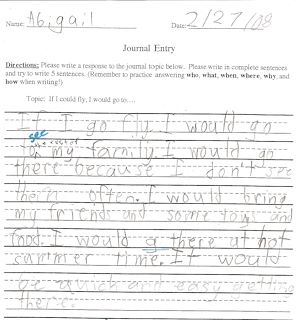 Name: Abigail Date: 2/27/08
Journal Entry
Directions: Please write a response to the journal topic below. Please write in complete sentences
and try to write 5 sentences. (Remember to practice answering who, what, when, where, why, and
how when writing!)
Topic: If I could fly, I would go to….
If I go fly I would go
see
to the rest of my family. I would go
there because I don't see
them often. I would bring
my friends and some toys and
food. I would g there at hot
summer time. It would
be quick and easy getting
there.